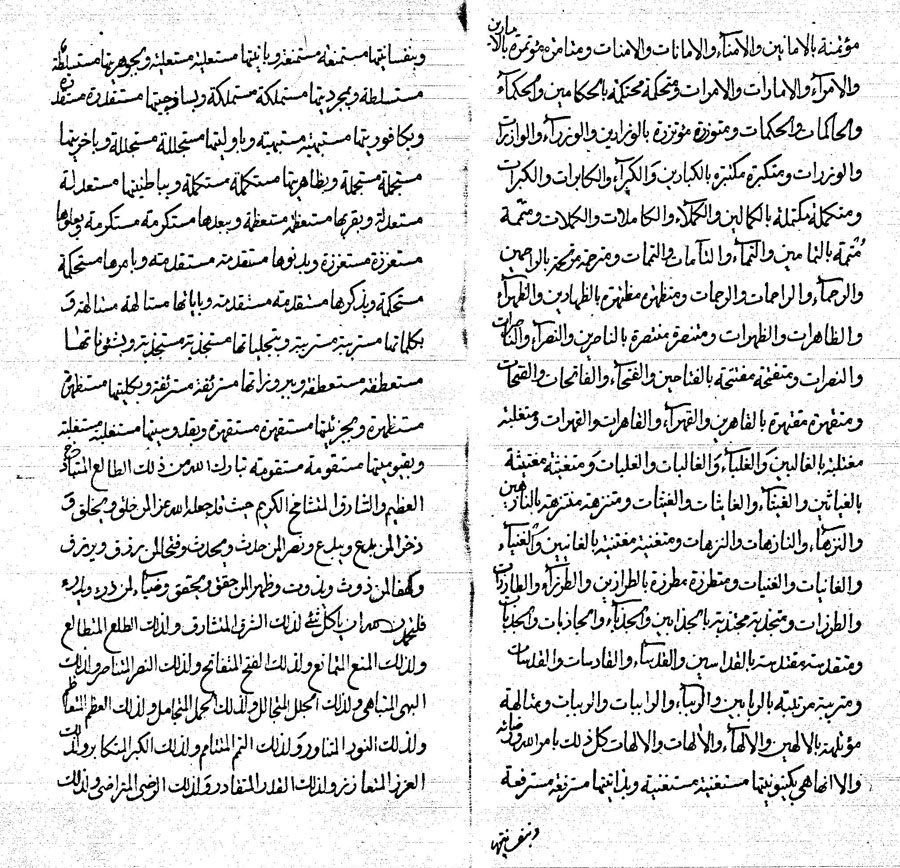 مؤتمنة بالامانين والامناء والامانات والامنات ومتامرة مؤتمرة بالامارين
والامراء والامارات والامرات ومتحكمة محتكمة بالحكامين والحكماء
والحاكمات والحكمات ومتوزرة مؤتزرة بالوزارين والوزراء والوازرات
والوزرات ومتكبرة مكتبرة بالكبارين والكبراء والكابرات والكبرات
ومتكملة مكتملة بالكمالين والكملاء والكاملات والكملات ومتتممة
متممة بالتمامين والتماء والتامات والتمات ومترحمة مرتحمة بالراحمين
والرحماء والراحمات والرحمات ومتظهرة مظتهرة بالظهارين والظهراء
والظاهرات والظهرات ومتنصرة منتصرة بالناصرين والنصراء والناصرات
والنصرات ومتفتحة مفتتحة بالفتاحين والفتحاء والفاتحات والفتحات
ومتقهرة مقتهرة بالقاهرين والقهراء والقاهرات والقهرات ومتغلبة
مغتلبة بالغالبين والغلباء والغالبات والغلبات ومتغيثة مغتيثة
بالغياثين والغيثاء والغايثات والغيثات ومتنزهة منتزهة بالنازهين
والنزهاء والنازهات والنزهات ومتغنية مغتنية بالغانيين والغنياء
والغانيات والغنيات ومتطرزة مطرزة بالطرازين والطرزاء والطارزات
والطرزات ومتجذبة مجتذبة بالجذابين والجذباء والجاذبات والجذبات
ومتقدسة مقتدسة بالقداسين والقدساء والقادسات والقدسات
ومتربية مرتبية بالربابين والرباء والرابيات والربيات ومتالهة
مؤتلهة بالالهين والالهاء والالهات والالهات كل ذلك بامر الله
والا انها هي بكينونيتها مستغنية مستغنية وبذاتيتها مسترفعة مسترفعة
وبنفسانيتها
وبنفسانيتها مستمنعة مستمنعة وبانيتها مستعلية مستعلية وبجوهريتها مستسلطة
مستسلطة وبمجرديتها مستملكة مستملكة وبساذجيتها مستقدرة مستقدرة
وبكافوريتها مستبهية مستبهية وباوليتها مستجللة مستجللة وباخريتها
مستجملة مستجملة وبظاهريتها مستكملة مستكملة وبباطنيتها مستعدلة
مستعدلة وبقربها مستعظمة مستعظمة وببعدها مستكرمة مستكرمة وبعلوها
مستعززة مستعززة وبدنوها مستقدمة مستقدمة وبامرها مستحكمة
مستحكمة وبذكرها مستقدمة مستقدمة وباياتها مستالهة مستالهة و
بكلماتها مستربية مستربية وبتجلياتها مستجذبة مستجذبة وبشئوناتها
مستعطفة مستعطفة وببروزاتها مسترئفة مسترئفة وبكليتها مستظهرة
مستظهرة وبجزئيتها مستقهرة مستقهرة وبقدوسيتها مستغلبة مستغلبة
وبقيوميتها مستقومة مستقومة تبارك الله من ذلك الطالع
العظيم والشارق المتشامخ الكريم حيث قد جعله الله عزا لمن خلق ويخلق و
ذخرا لمن بدع ويبدع ونصرا لمن حدث ويحدث وفتحا لمن رزق ويرزق
وكهفا لمن ذوت ويذوت وظهرا لمن حقق ويحقق وضياء لمن ذرء ويذرء
كل شئ لذلك الشرق المتشارق ولذلك الطلع المتطالع
ولذلك المنع المتمانع ولذلك الفتح المتفاتح ولذلك النصر المتناصر ولذلك
البهى المتباهى ولذلك الجلل المتجالل ولذلك الجمل المتجامل ولذلك العظم المتعاظم
ولذلك النور المتناور ولذلك التم المتتام ولذلك الكبر المتكابر ولذلك
العزز المتعازز ولذلك القدر المتقادر ولذلك الرضى المتراضى ولذلك